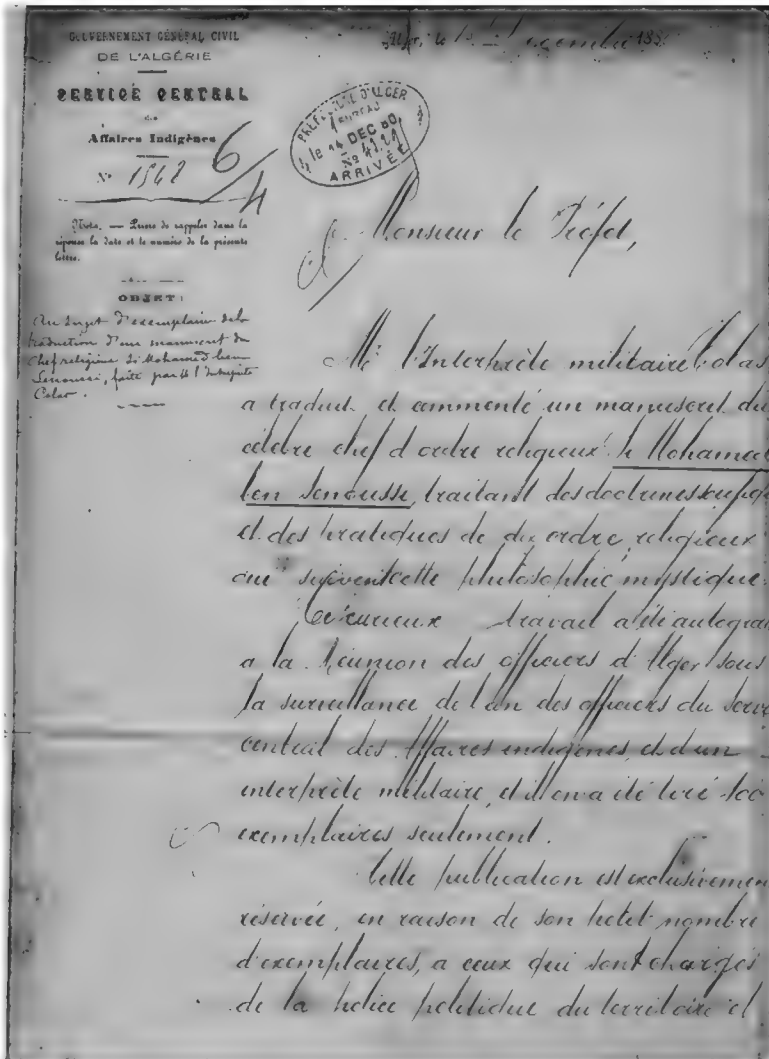 GOUVERNEMENT GÉNÉRAL CIVIL
DE L'ALGÉRIE
SERVICE CENTRAL
des
Affaires Indigènes
N° 1548
6/4
Nota. — Prière de rappeler dans la
réponse la date et le numéro de la présente
lettre.
OBJET:
Au sujet d'exemplaire de la
traduction d'un manuscrit du
Chef religieux Si Mohamed ben
Senoussi, faite par M. l'Interprète
Colas.
Alger, le Décembre 188
PRÉFECTURE D'ALGER
BUREAU
le 14 DEC 80
N°
ARRIVÉE
Monsieur le Préfet,
Mr l'Interprète militaire Colas
a traduit et commenté un manuscrit du
célèbre chef d'ordre religieux Si Mohamed
ben Senoussi, traitant des doctrines
et des pratiques de dix ordre religieux
qui suivent cette philosophie mystique.
Ce curieux travail a été autogra
a la Réunion des officiers d'Alger sous
la surveillance de l'un des officiers du Serv
central des Affaires indigènes, et d'un
interprète militaire, et il en a été tiré 100
exemplaires seulement.
Cette publication est exclusivemen
réservée, en raison de son petit nombre
d'exemplaires, a ceux qui sont chargés
de la police politique du territoire et